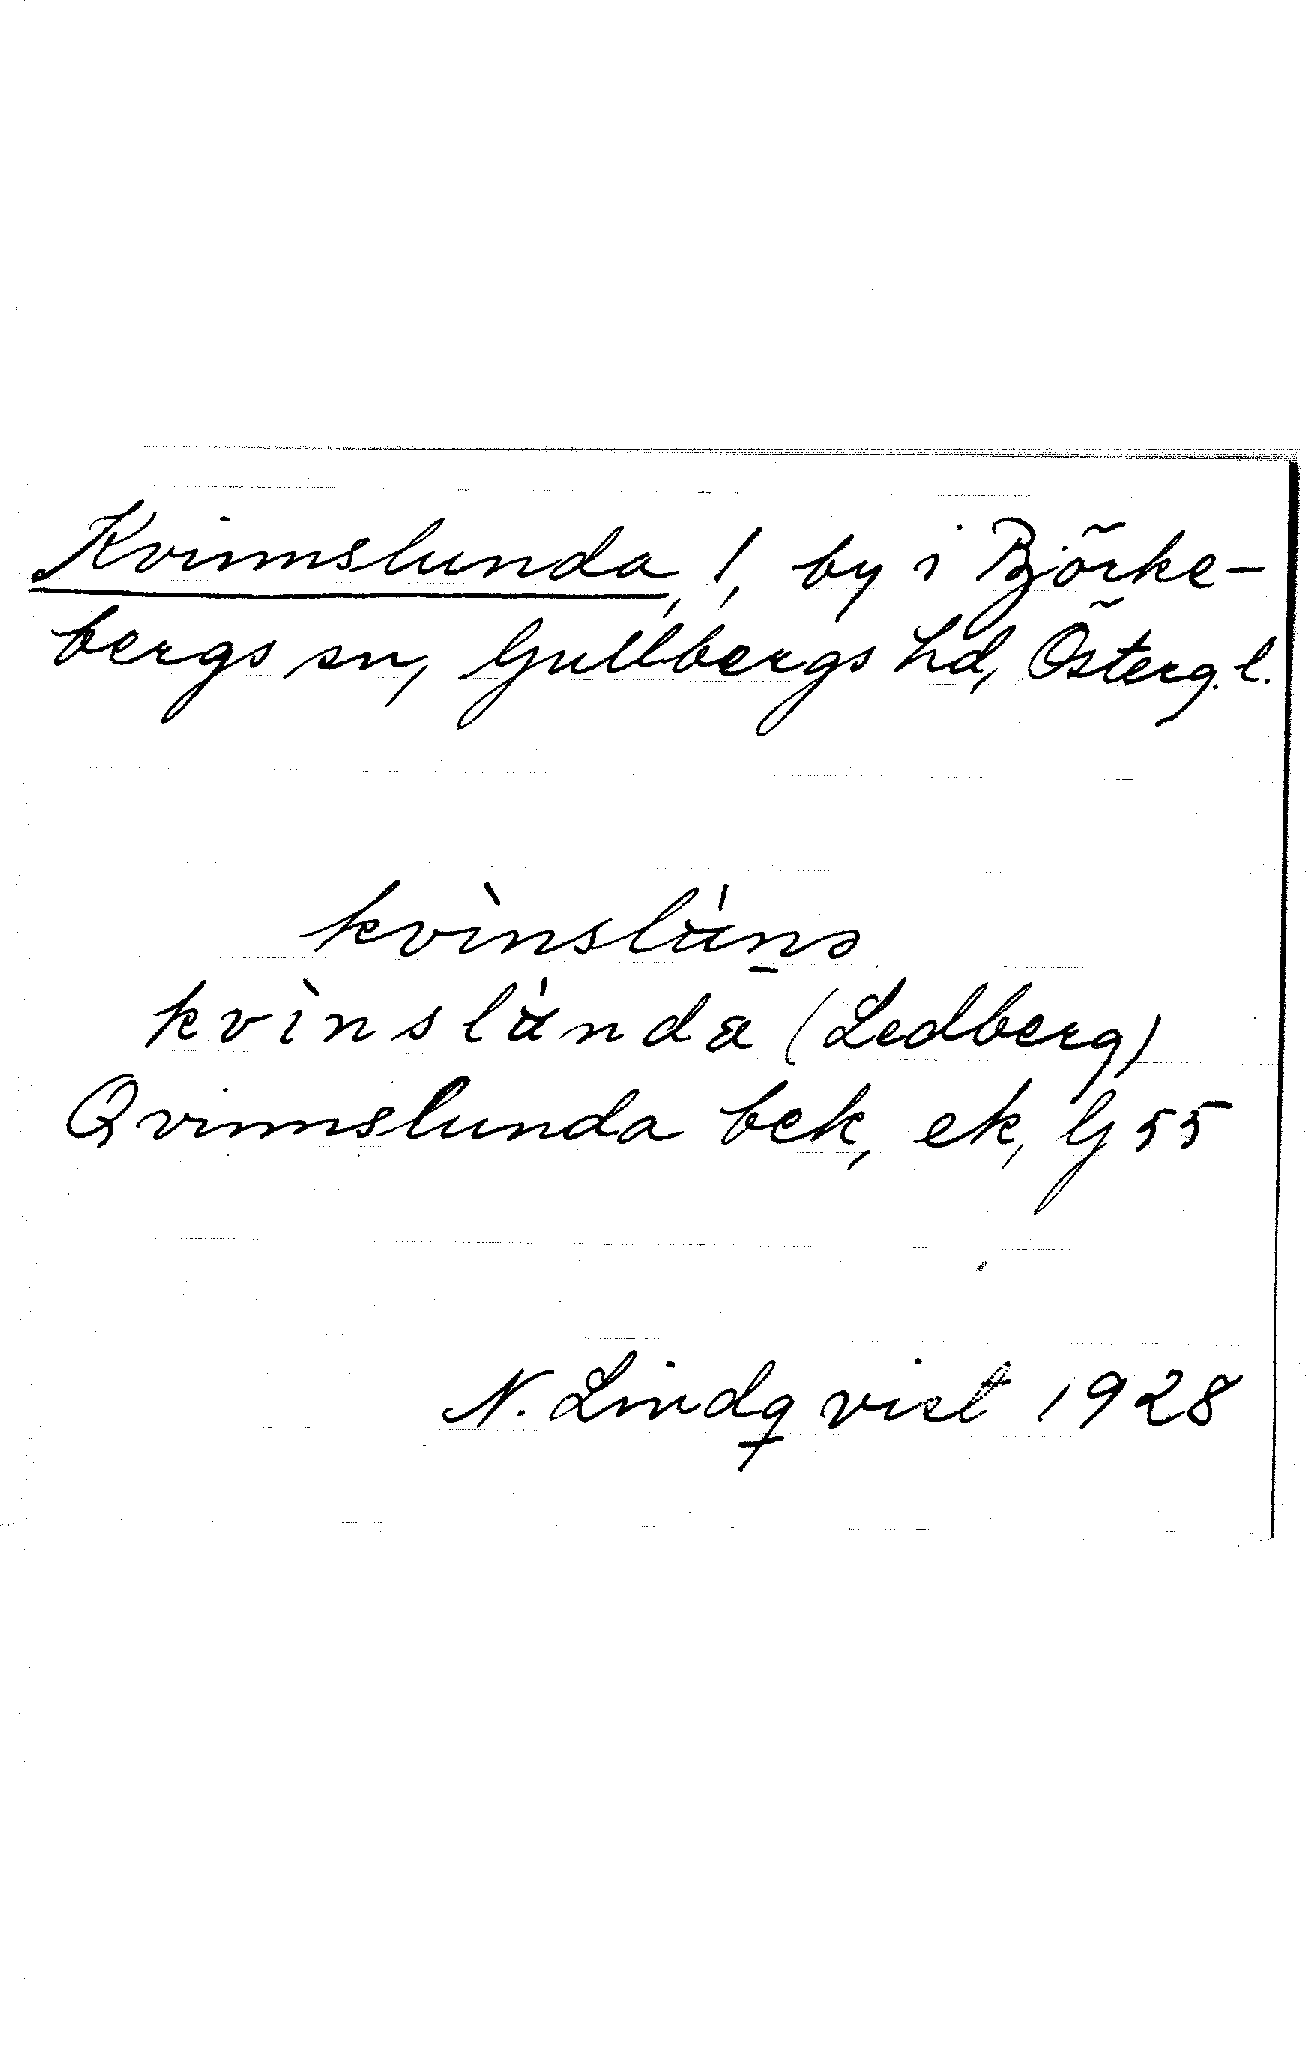 Kvinnslunda, !, by i Björke-
bergs sn, Gullbergs hd, Österg.l.
kvìnslα̍n̠ɔ
kvìnslα̍nda (Ledberg)
Qvinnslunda bek, ek, G 55
N. Lindqvist 1928